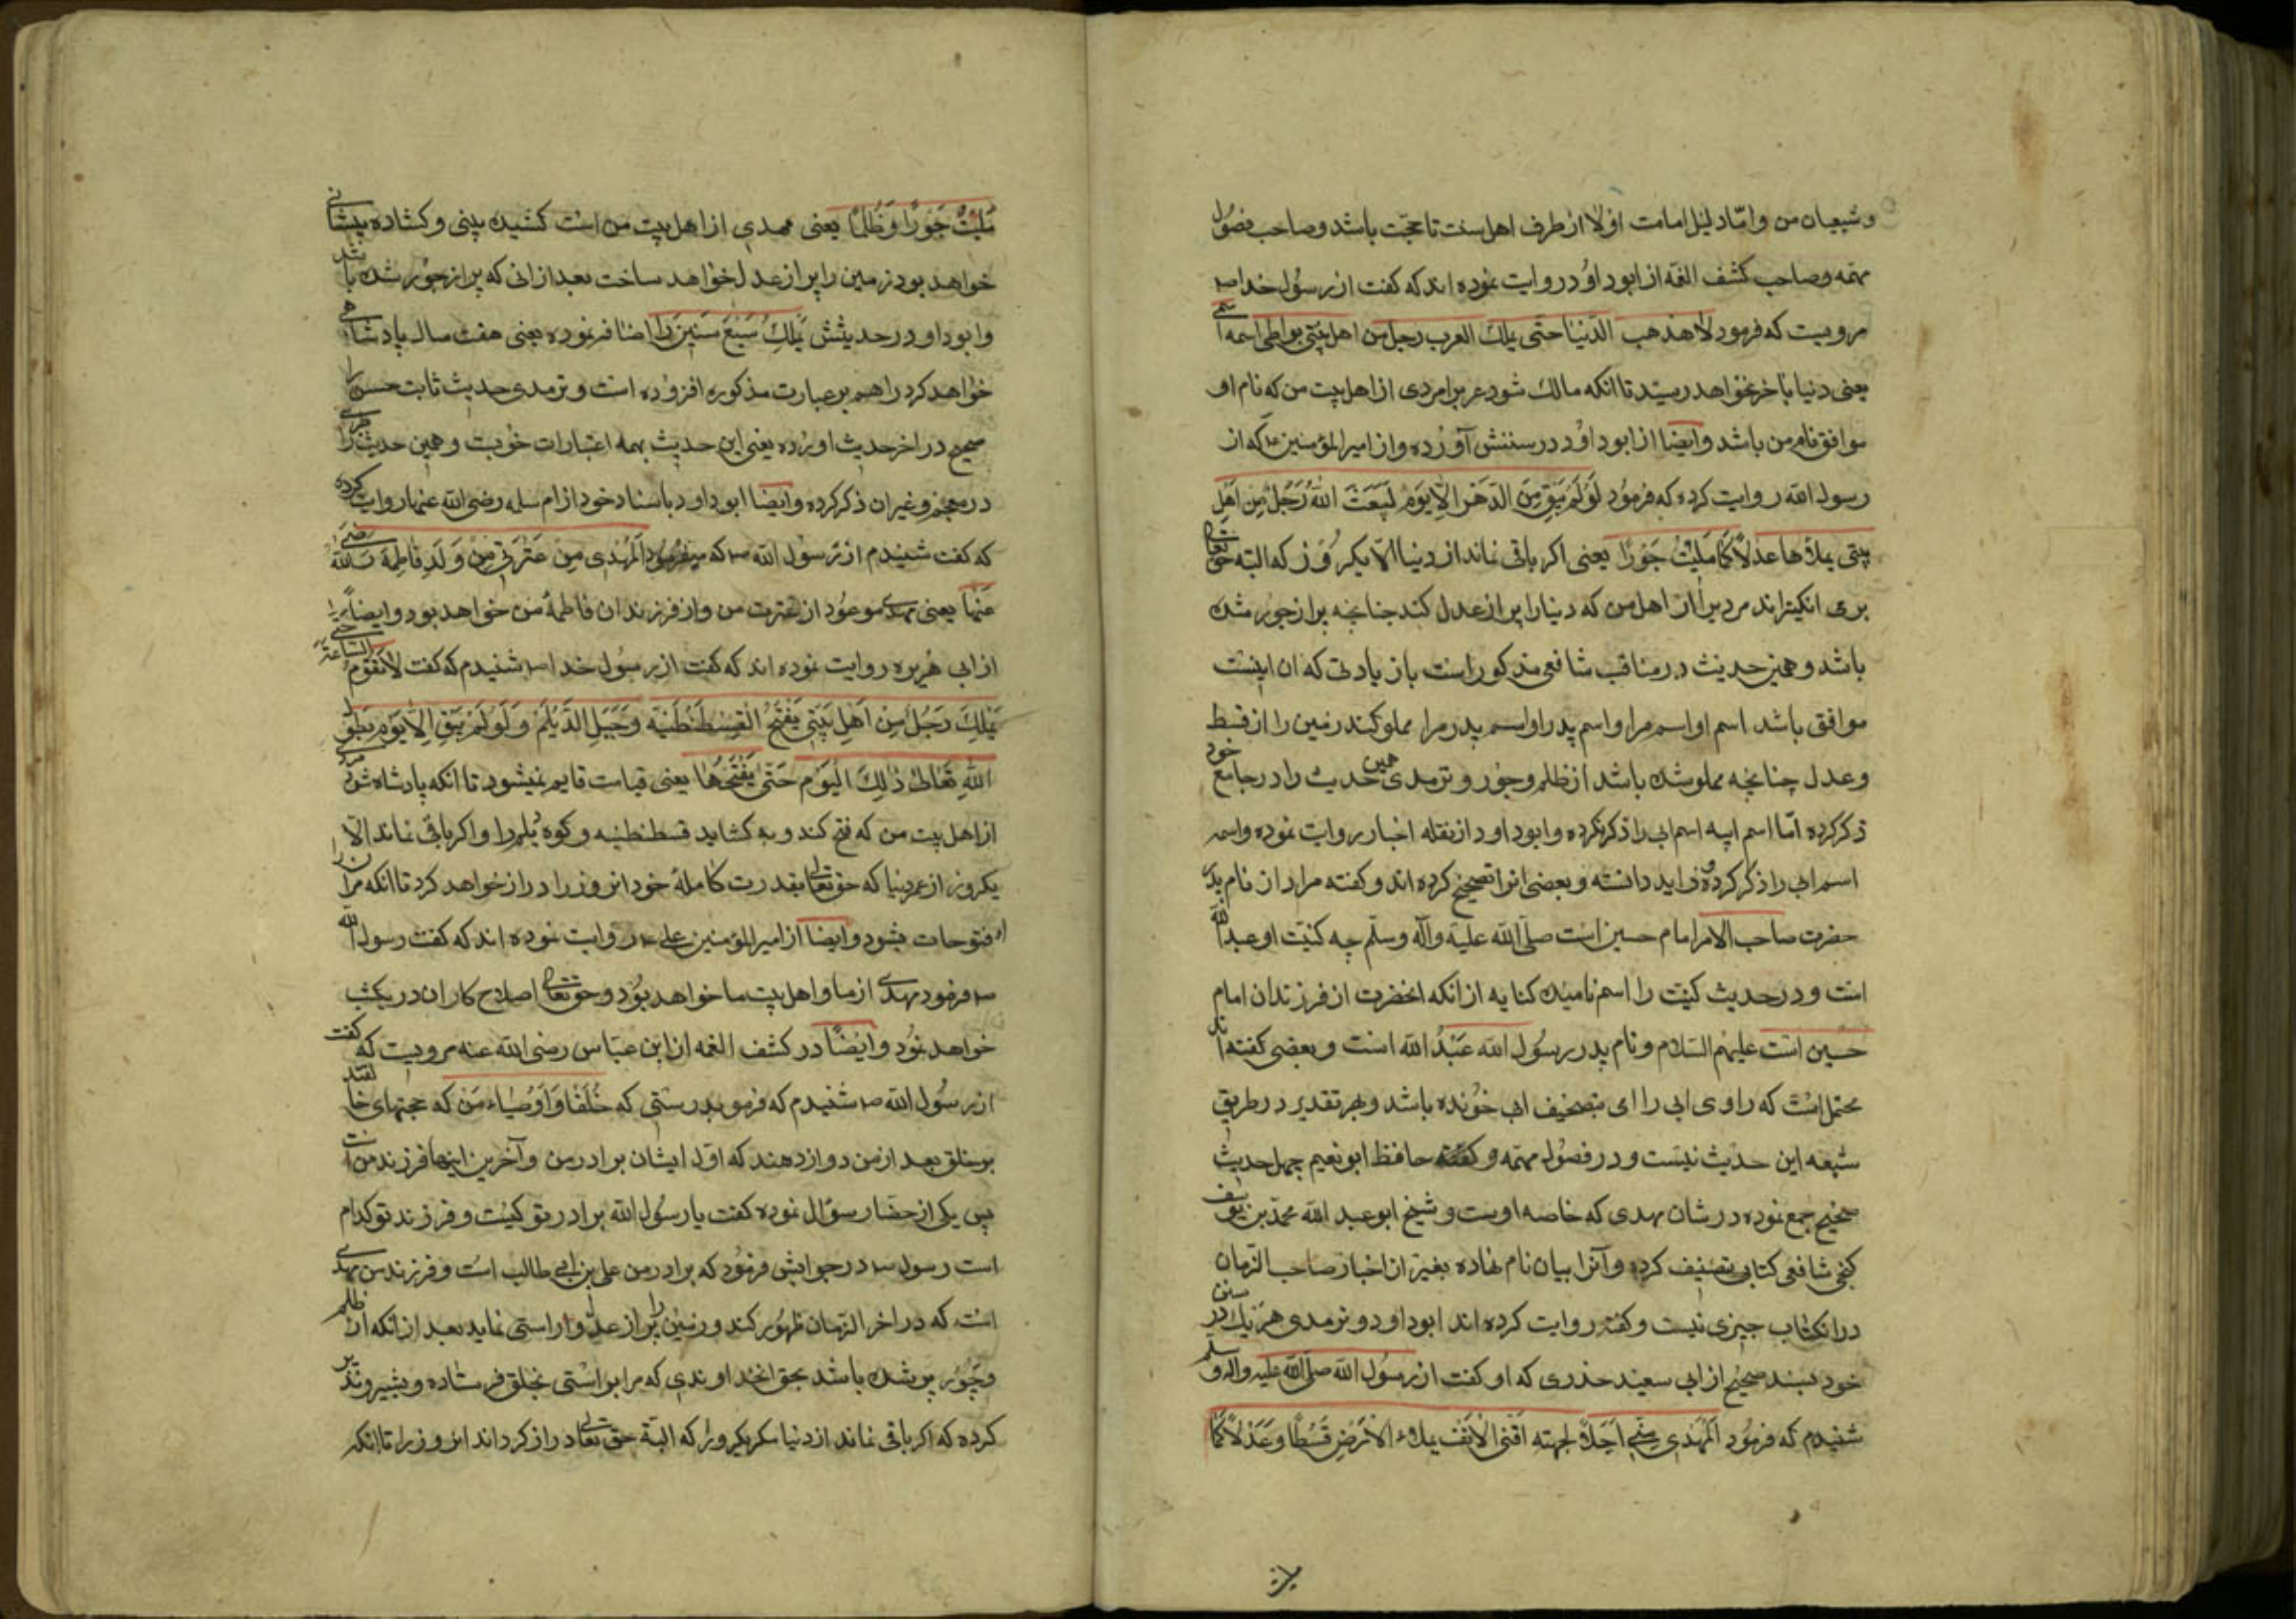 و شیعیان من و امّا دلیل امامت اوّلا از طرف اهل سنت تا حجّت باشد و صاحب فصول
مهمه و صاحب کشف الغمّه از ابو داوُد روایت نموده اند که کفت از رسُول خدا ص
مرویست که فرمود لا تذهب الدّنیا حتّی یملک العرب رجل من اهل بیتی یواطی اسمه اسمی
یعنی دنیا باخر نخواهد رسید تا انکه مالک شود عرب را مردی از اهل بیت من که نام او
موافق نام من باشد و ایضا از ابو داوُد در سننش آورده و از امیر المؤمنین ع که از
رسول الله روایت کرده که فرمُود لَو لَم یَبقَ مِنَ الدَّهَر اِلّا یَوم لَبَعَثَ اللهُ رَجُلٌ مِن اَهلِ
بیتی یملاها عدلًا کَما مُلِئَت جَورًا یعنی اکر باقی نماند از دنیا الّا یکروز که البته حق تعالی
بر می انکیزاند مردیرا از اهل من که دنیا را پر از عدل کند چنانچه پر از جور شده
باشد و همین حدیث در مناقب شافعی مذکور است باز یادتی که ان اینست
موافق باشد اسم او اسم مرا و اسم پدر او اسم پدر مرا مملو کند زمین را از قسط
و عدل چنانچه مملو شده باشد از ظلم و جور و ترمدی همین حدیث را در جامع خود
ذکر کرده امّا اسم ابیه اسم ابی را ذکر نکرده و ابو داود از نقله اخبار روایت نموده و اسمه
اسم ابی را ذکر کرده و زاید دانسته و بعضی انرا تصحیح کرده اند و کفته مراد از نام پدر
حضرت صاحب الامر امام حسین است صلّی الله علیه و آله و سلّم چه کنیت او عبد الله
است و در حدیث کنیت را اسم نامیده کنایه از انکه انحضرت از فرزندان امام
حسین است علیهم السّلام و نام پدر رسُول الله عَبدُ الله است و بعضی کفته اند
محتمل است که راوی ابی را ای بتصحیف ابی خوٰنده باشد و بهر تقدیر در طریق
شیعه این حدیث نیست و در فصُول مهمّه و کفته حافظ ابو نعیم چهل حدیث
صحیح جمع نموده در شان مهدی که خاصه اوست و شیخ ابو عبد الله محمّد بن یوسف
کنجی شافعی کتابی تصنیف کرده و آنرا بیان نام نهاده بغیر از اخبار صاحب الزمان
در انکتاب چیزی نیست و کفته روایت کرده اند ابو داود و ترمدی هر یک در سنن
خود بسند صحیح از ابی سعید خدری که او کفت از رسُول الله صلّی الله علیه و اله و سلم
شنیدم که فرمُود اَلمَهدی مِنّی اَجلَا لجبهته اَقنی الاَنف یملاء الاَرضِ قسطًا و عَدلًا کَما
مُلِئَت جَورًا وَ ظُلمًا یعنی مهدی از اهل بیت من است کشیده بینی و کشاده پیشانی
خواهد بود زمین را پر از عدل خواهد ساخت بعد از انی که پر از جور شده باشد
و ابو داود در حدیثش یَملِکُ سَبعَ سَنینَ را اضافه نموده یعنی هفت سال پادشاهی
خواهد کرد را هم بر عبارت مذکوره افزوده است و ترمدی حدیث ثابت حسن را
صحیح در اخر حدیث اورده یعنی این حدیث بهمه اعتبارات خوبست و همین حدیث را
در معجم و غیر ان ذکر کرده و ایضا ابو داود باسناد خود از ام سلمه رضی الله عنها روایت کرده
که کفت شنیدم از رَسُول الله ص که میفرمُود اَلمَهدی مِن عِترَتی مِن وَلَدِ فاطِمَه رضی الله
عَنها یعنی مهدی موعود از عترت من و از فرزندان فاطمه من خواهد بود و ایضًا
از ابی هُریره روایت نموده اند که کفت از رسُول خدا ص شنیدم که کفت لا تَقومُ الساعة حتی
یَملِکَ رَجُلٌ مِن اَهلِ بَیتی یَفتَحُ القِسطَنطَنیّه وَ جَبَلِ الدَّیلَم وَ لَو لَم یَبقَ اِلّا یَوم یَطَوّل
الله تَعالیٰ ذٰلِکَ الیَوم حَتّیٰ یَفتَحَها یعنی قیامت قایم نمیشود تا انکه پادشاه شود مردی
از اهل بیت من که فتح کند و به کشاید قسطنطنیه و کوه دیلم را و اکر باقی نماند الّا
یکروز از عمر دنیا که حق تعالی بقدرت کاملهٔ خود انروز را دراز خواهد کرد تا انکه مر ان را
فتوحات بشود و ایضا از امیر المؤمنین علی ع روایت نموده اند که کفت رسول الله
ص فرمود مهدی از ما و اهل بیت ما خواهد بوُد و حق تعالی اصلاح کار ان در یکشب
خواهد نمُود و ایضًا در کشف الغمه از ابن عبّاس رضی الله عنه مرویست که کفت
از رسُول الله ص شنیدم که فرمود بدرستی که خُلَفا وَ اَوصِیاء مَن که حجتهای خدا
بر خلق بعد از من دوازدهند که اوّل ایشان برادر من و آخرین اینها فرزند من است
پس یکی از حضار سؤال نموده کفت یا رسُول الله برادر تو کیست و فرزند تو کدام
است رسول ص در جوابش فرمُود که برادر من علی بن ابی طالب است و فرزند من مهدی
است که در اخر الزمان ظهور کند و زمین را پر از عدل و راستی نماید بعد از انکه از ظلم
و جَور پر شده باشد بحق انخداوندی که مرا براستی بخلق فرستاده و بشیر و نذیر
کرده که اکر باقی نماند از دنیا مکر یکروز که البته حق تعالی دراز کرداند انروز را تا انکه